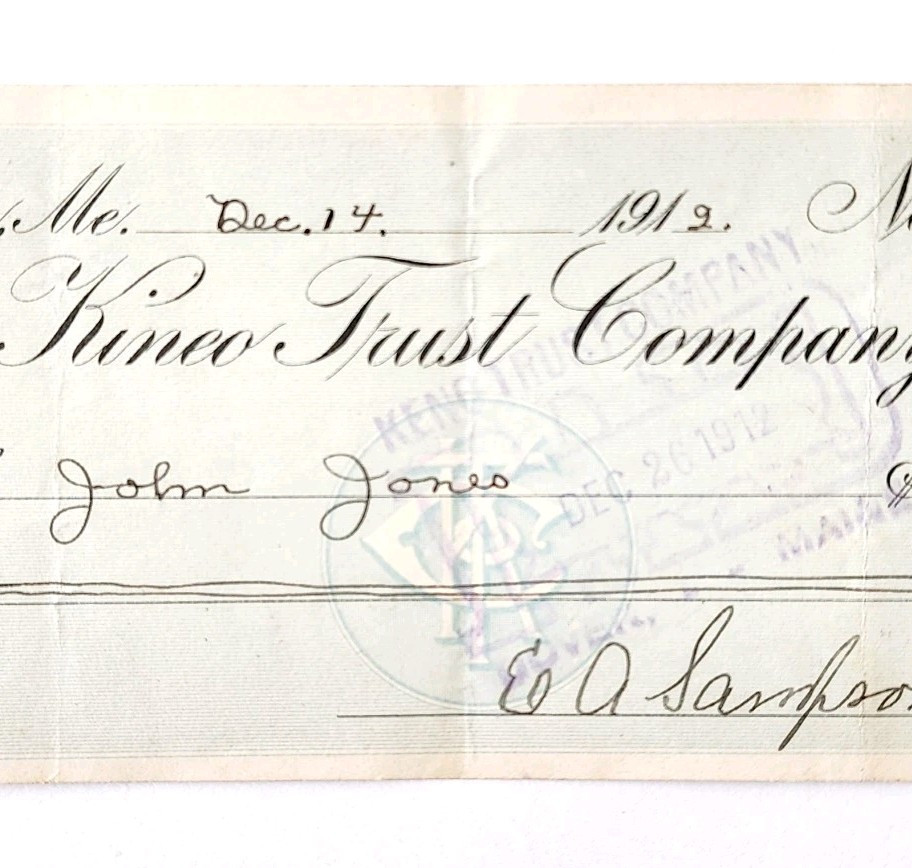 Me. Dec. 14. 1912. No
Kineo Trust Company
KINEO TRUST COMPANY
DEC 26 1912
John Jones $
MAINE
E A Sampson